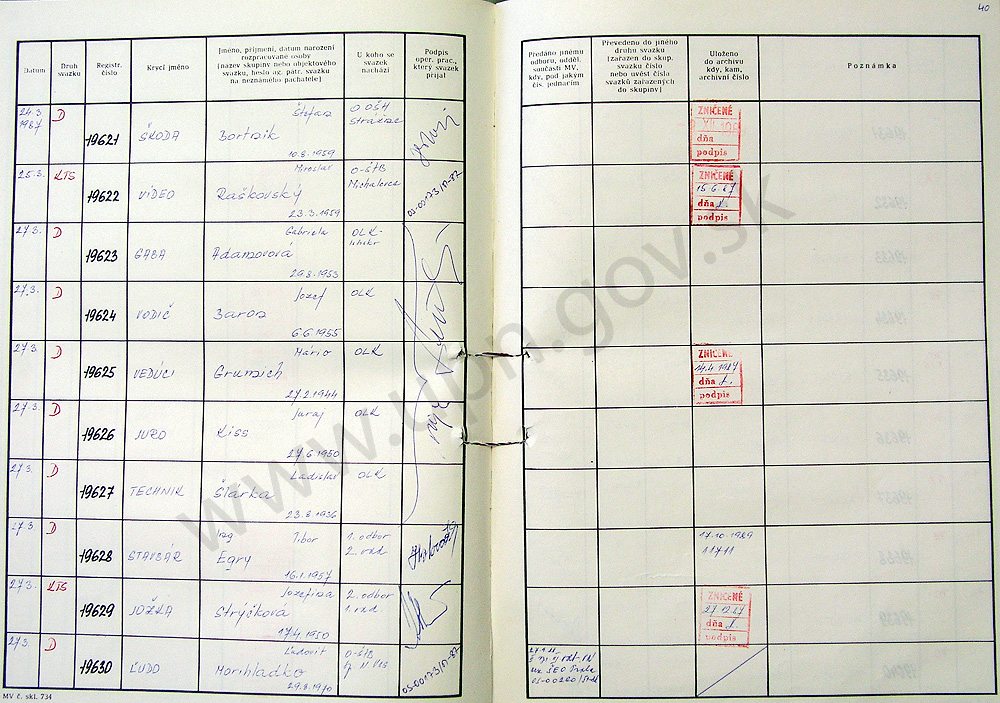 40
Datum
Druh svazku
Registr. číslo
Krycí jméno
Jméno, příjmení, datum narození
rozpracované osoby
(název skupiny nebo objektového
svazku, heslo ag. pátr. svazku
na neznámého pachatele)
U koho se
svazek
nachází
Podpis
oper. prac.,
který svazek
přijal
Předáno jinému
odboru, odděl.
součásti MV,
kdy, pod jakým
čís. jednacím
Převedeno do jiného
druhu svazku
(zařazen do skup.
svazku číslo
nebo uvést čísla
svazků zařazených
do skupiny)
Uloženo
do archivu
kdy, kam,
archivní číslo
Poznámka
24.3. 1987 D 19621 ŠKODA Štefan Bortnik 10.8.1959
ZNIČENÉ
dňa
podpis
25.3. KTS 19622 VIDEO Miroslav Raškovský 23.3.1959 O-ŠTB Michalovce
ZNIČENÉ
15.6.87
dňa
podpis
27.3. D 19623 GABA Gabriela Adamovová 29.8.1953 OLK-
27.3. D 19624 VODIČ Jozef Baron 6.6.1955 OLK
27.3. D 19625 VEDÚCI Mário Grumich 27.2.1944 OLK
ZNIČENÉ
14.4.1987
dňa
podpis
27.3. D 19626 JURO Juraj Kiss 27.6.1950 OLK
27.3. D 19627 TECHNIK Ladislav Šlárka 23.8.1936 OLK
27.3. D 19628 STAVBÁR Ing. Tibor Egry 16.1.1957 1. odbor 2. rad.
17.10.1989
11711
27.3. KTS 19629 JOŽKA Jozefína Strýčková 17.4.1950 2. odbor 1. rad.
ZNIČENÉ
27.12.87
dňa
podpis
27.3. D 19630 ĽUDO Ľudovít Morihladko 29.8.1970 O-ŠtB
MV č. skl. 734
www.upn.gov.sk